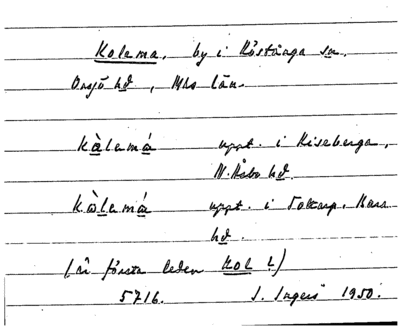 Kolema, by i Röstånga sn,
Onsjö hd, Mhs län.
Kàlemá uppt. i Riseberga,
N. Åsbo hd.
Kàlemá uppt. i Tottarp, Bara
hd.
(är första leden kol?)
5716. S. Ingers 1950.